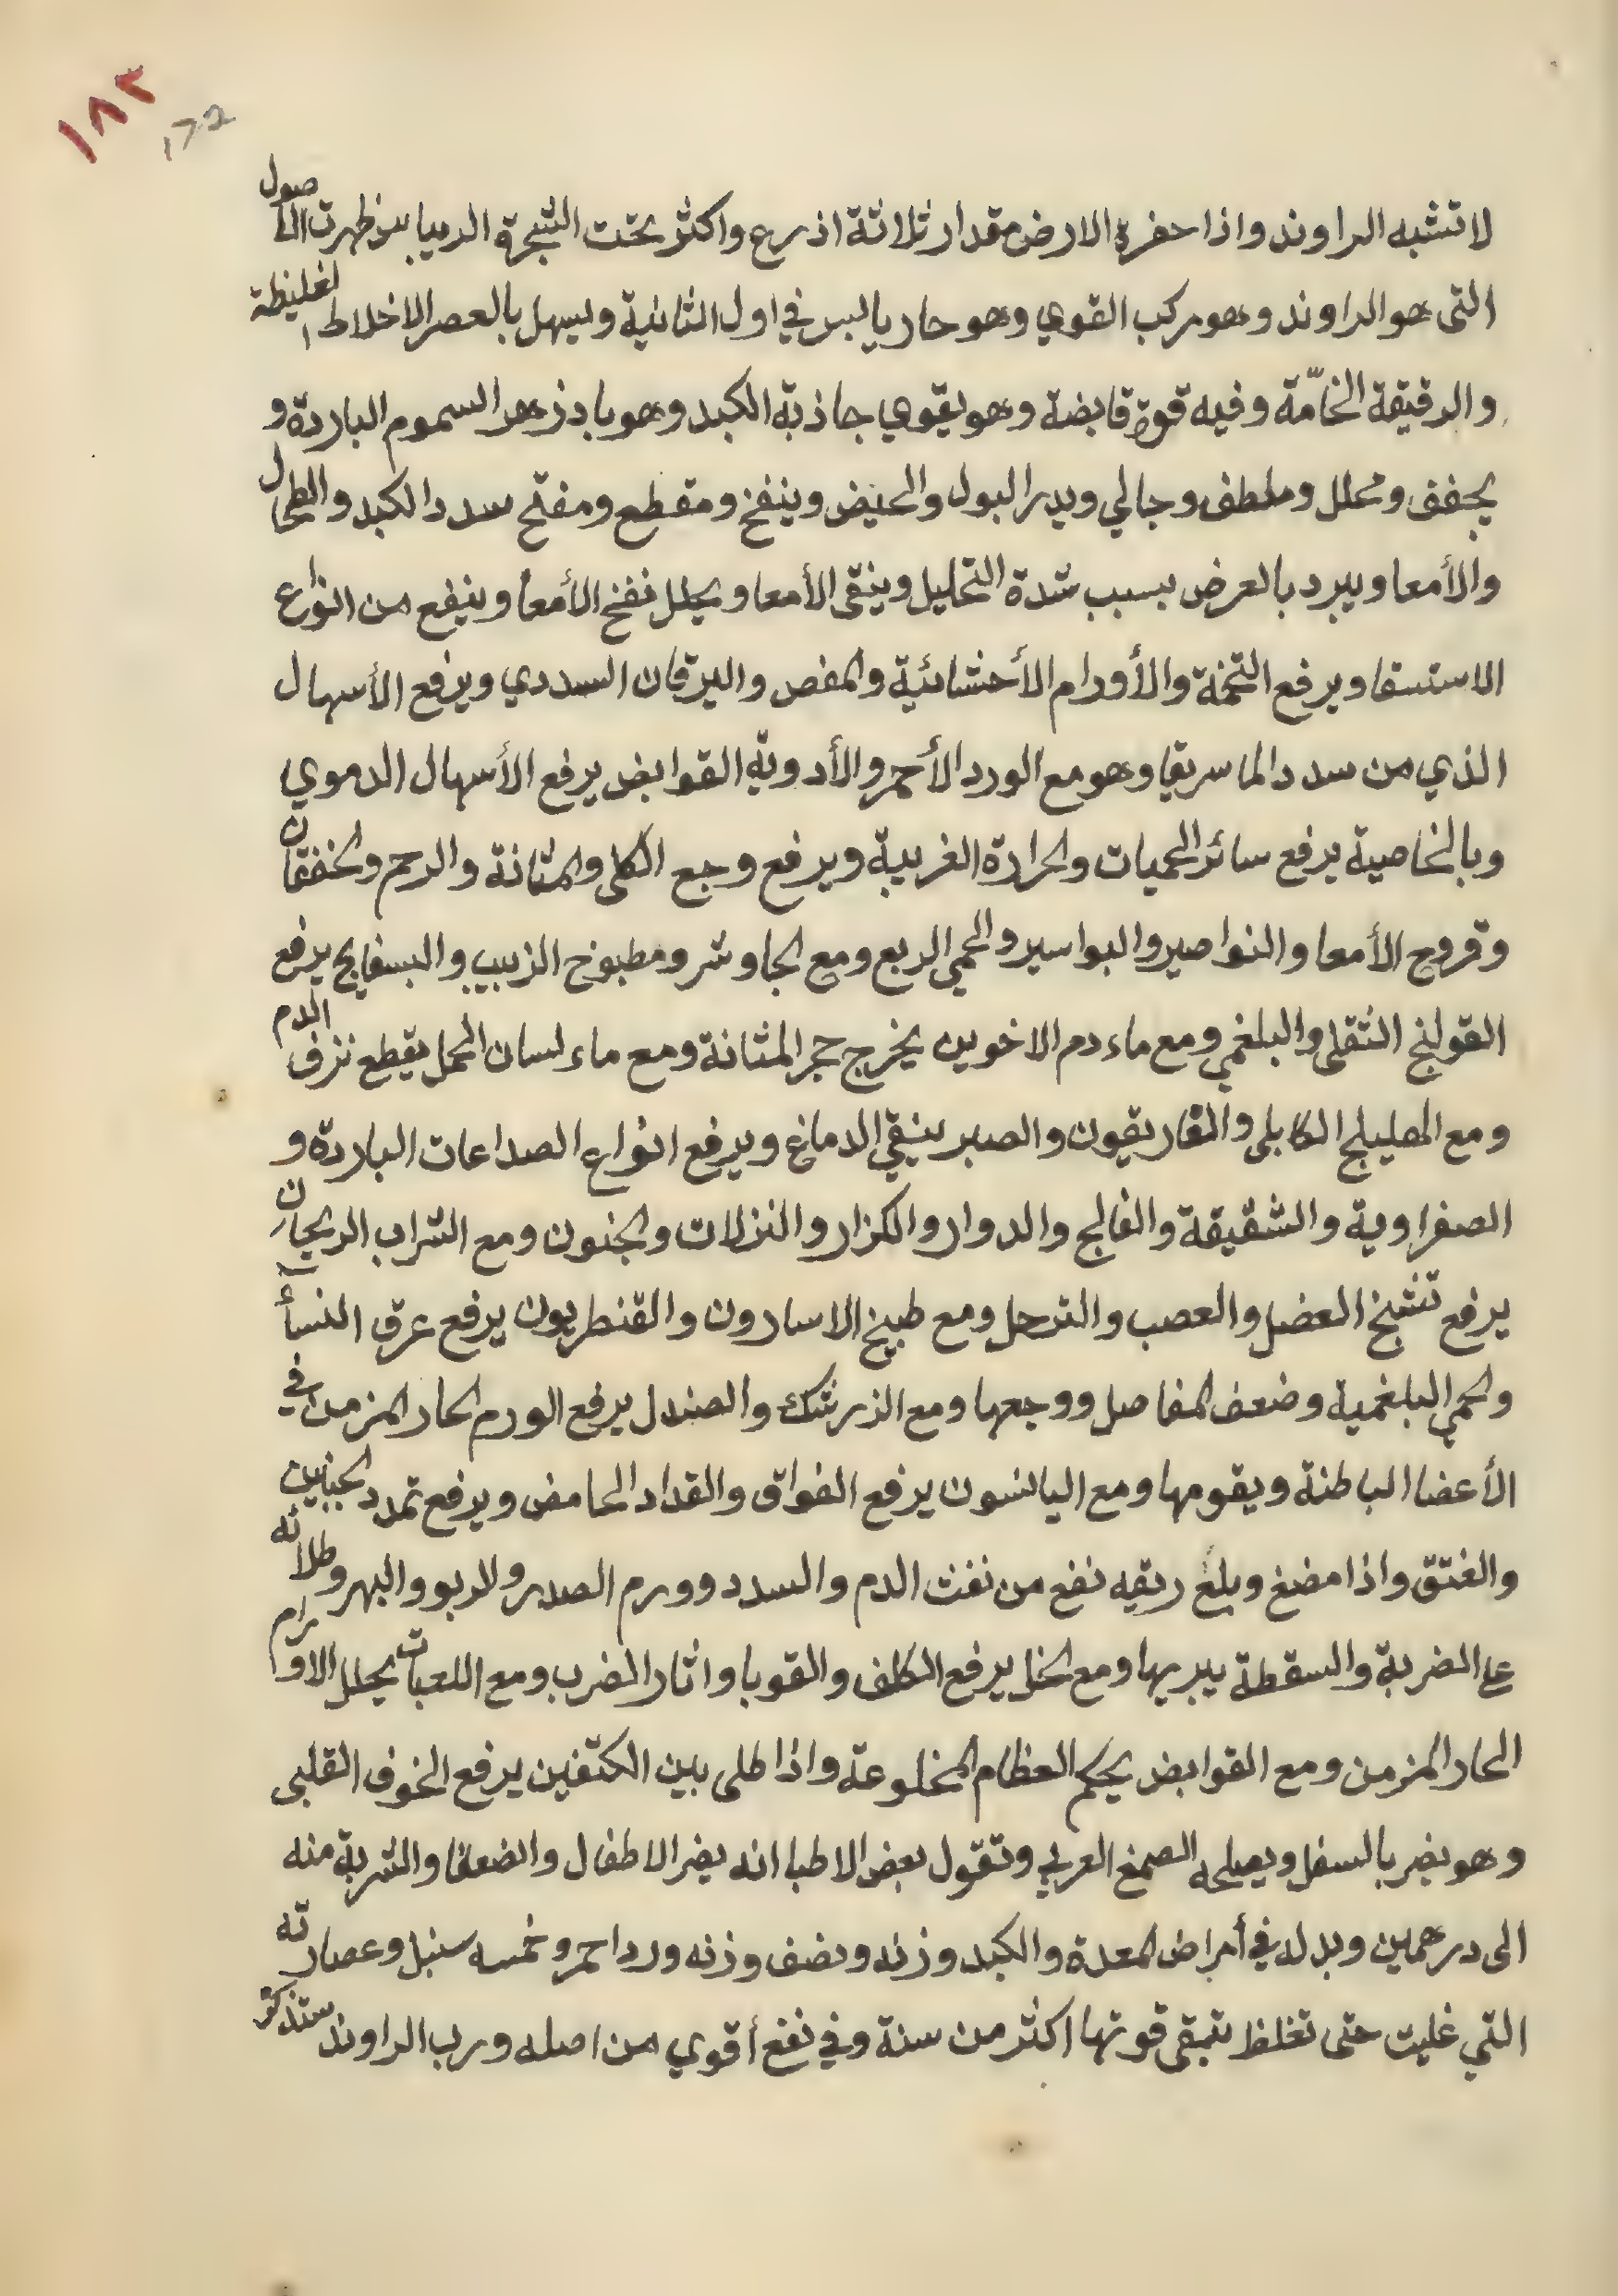 ١٨٣
172
لا تشبه الراوند واذا حفرة الارض مقدار ثلاثة اذرع واكثر تحت الشجرة الديبا بيز ظهرت الاصول
التى هو الراوند وهو مركب القوي وهو حار يابس في اول الثانية ويسهل بالعصر الاخلاط الغليظة
والرقيقة الخامّة وفيه قوة قابضة وهو يقوي جاذبة الكبد وهو بادزهر السموم الباردة و
يجفف ومحلل وملطف وجالي ويدر البول والحيض وينفخ ومقطع ومفتح سدد الكبد والطحال
والأمعا ويبرد بالعرض بسبب شدة التحليل وينقى الأمعا ويحلل نفخ الأمعا وينفع من انواع
الاستسقا ويرفع التخمة والأورام الأحشائية والمغص واليرقان السددي ويرفع الأسهال
الذي من سدد الماسريقا وهو مع الورد الأحمر والأدوية القوابض يرفع الأسهال الدموي
وبالخاصية يرفع سائر الحميات والحرارة الغريبة ويرفع وجع الكلى والمثانة والرحم والخفقان
وقروح الأمعا والنواصير والبواسير والحمى الربع ومع الجاوشر ومطبوخ الزبيب والبسفايج يرفع
القولنج الثقلى والبلغمي ومع ماء دم الاخوين يخرج حجر المثانة ومع ماء لسان الحمل يقطع نزف الدم
ومع الهليلج الكابلى والغاريقون والصبر ينقي الدماغ ويرفع انواع الصداعات الباردة و
الصفراوية والشقيقة والفالج والدوار والكزاز والنزلات والجنون ومع الشراب الريحان
يرفع تشنج العضل والعصب والترحل ومع طبيخ الاسارون والقنطريون يرفع عرق النسأ
والحمي البلغمية وضعف المفاصل ووجعها ومع الزرشك والصندل يرفع الورم الحار المزمن في
الأعضا الباطنة ويقومها ومع اليانسون يرفع الفواق والقداد الحامض ويرفع تمدد الجنبين
والفتق واذا مضغ وبلغ ريقه نفع من نفث الدم والسدد وورم الصدر والربو والبهر وطلائه
على الضربة والسقطة يبريها ومع الخل يرفع الكلف والقوبا واثار الضرب ومع اللعبات يحلل الاورام
الحار المزمن ومع القوابض يحكم العظام المخلوعة واذا طلى بين الكتفين يرفع الخوف القلبى
وهو يضر بالسفل ويصلحه الصمغ العربي وتقول بعض الاطبا انه يضر الاطفال والضعفا والشربة منه
الى درهمين وبدله في أمراض المعدة والكبد وزنه ونصف وزنه ورد احمر وخمسه سنبل وعصارته
التي غليت حتى تغلظ تبقى قوتها اكثر من سنة وفي نفع أقوي من اصله ورب الراوند ستذكر